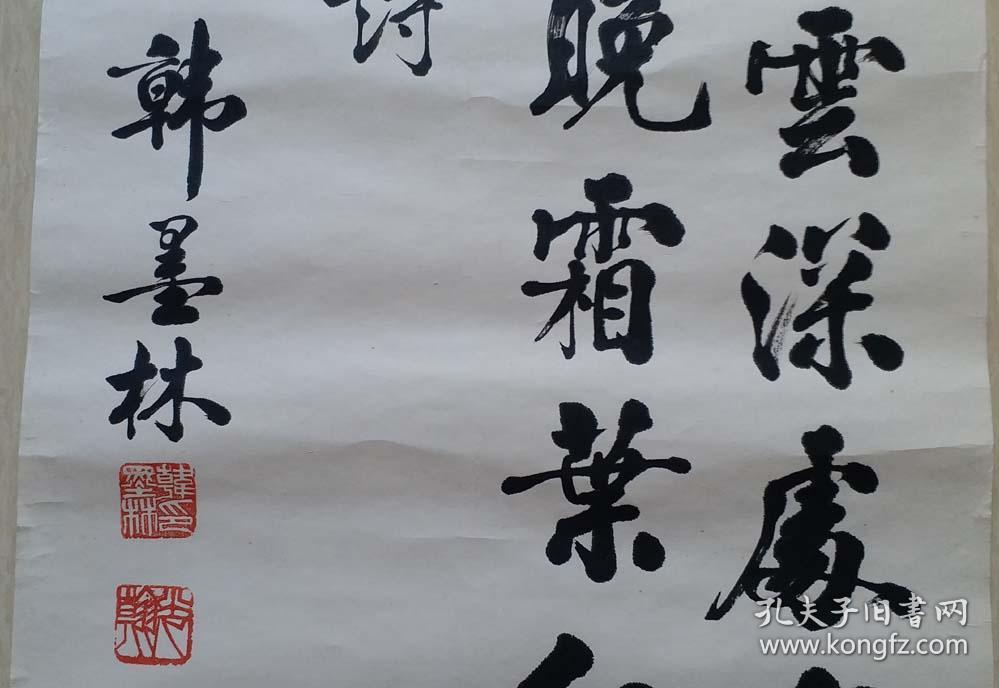 雲深處
晚霜葉
詩
韩墨林
韓墨林印
孔夫子旧書网
www.kongfz.com